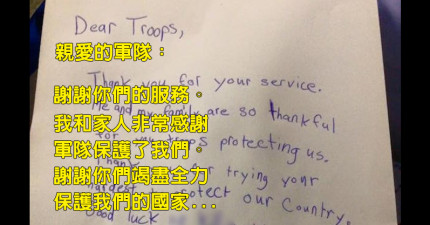 Dear Troops,
親愛的軍隊：
Thank you for your service.
謝謝你們的服務。
Me and my family are so thankful
我和家人非常感謝
troops protecting us.
軍隊保護了我們。
for trying your
謝謝你們竭盡全力
protect our Country.
保護我們的國家...
Good luck